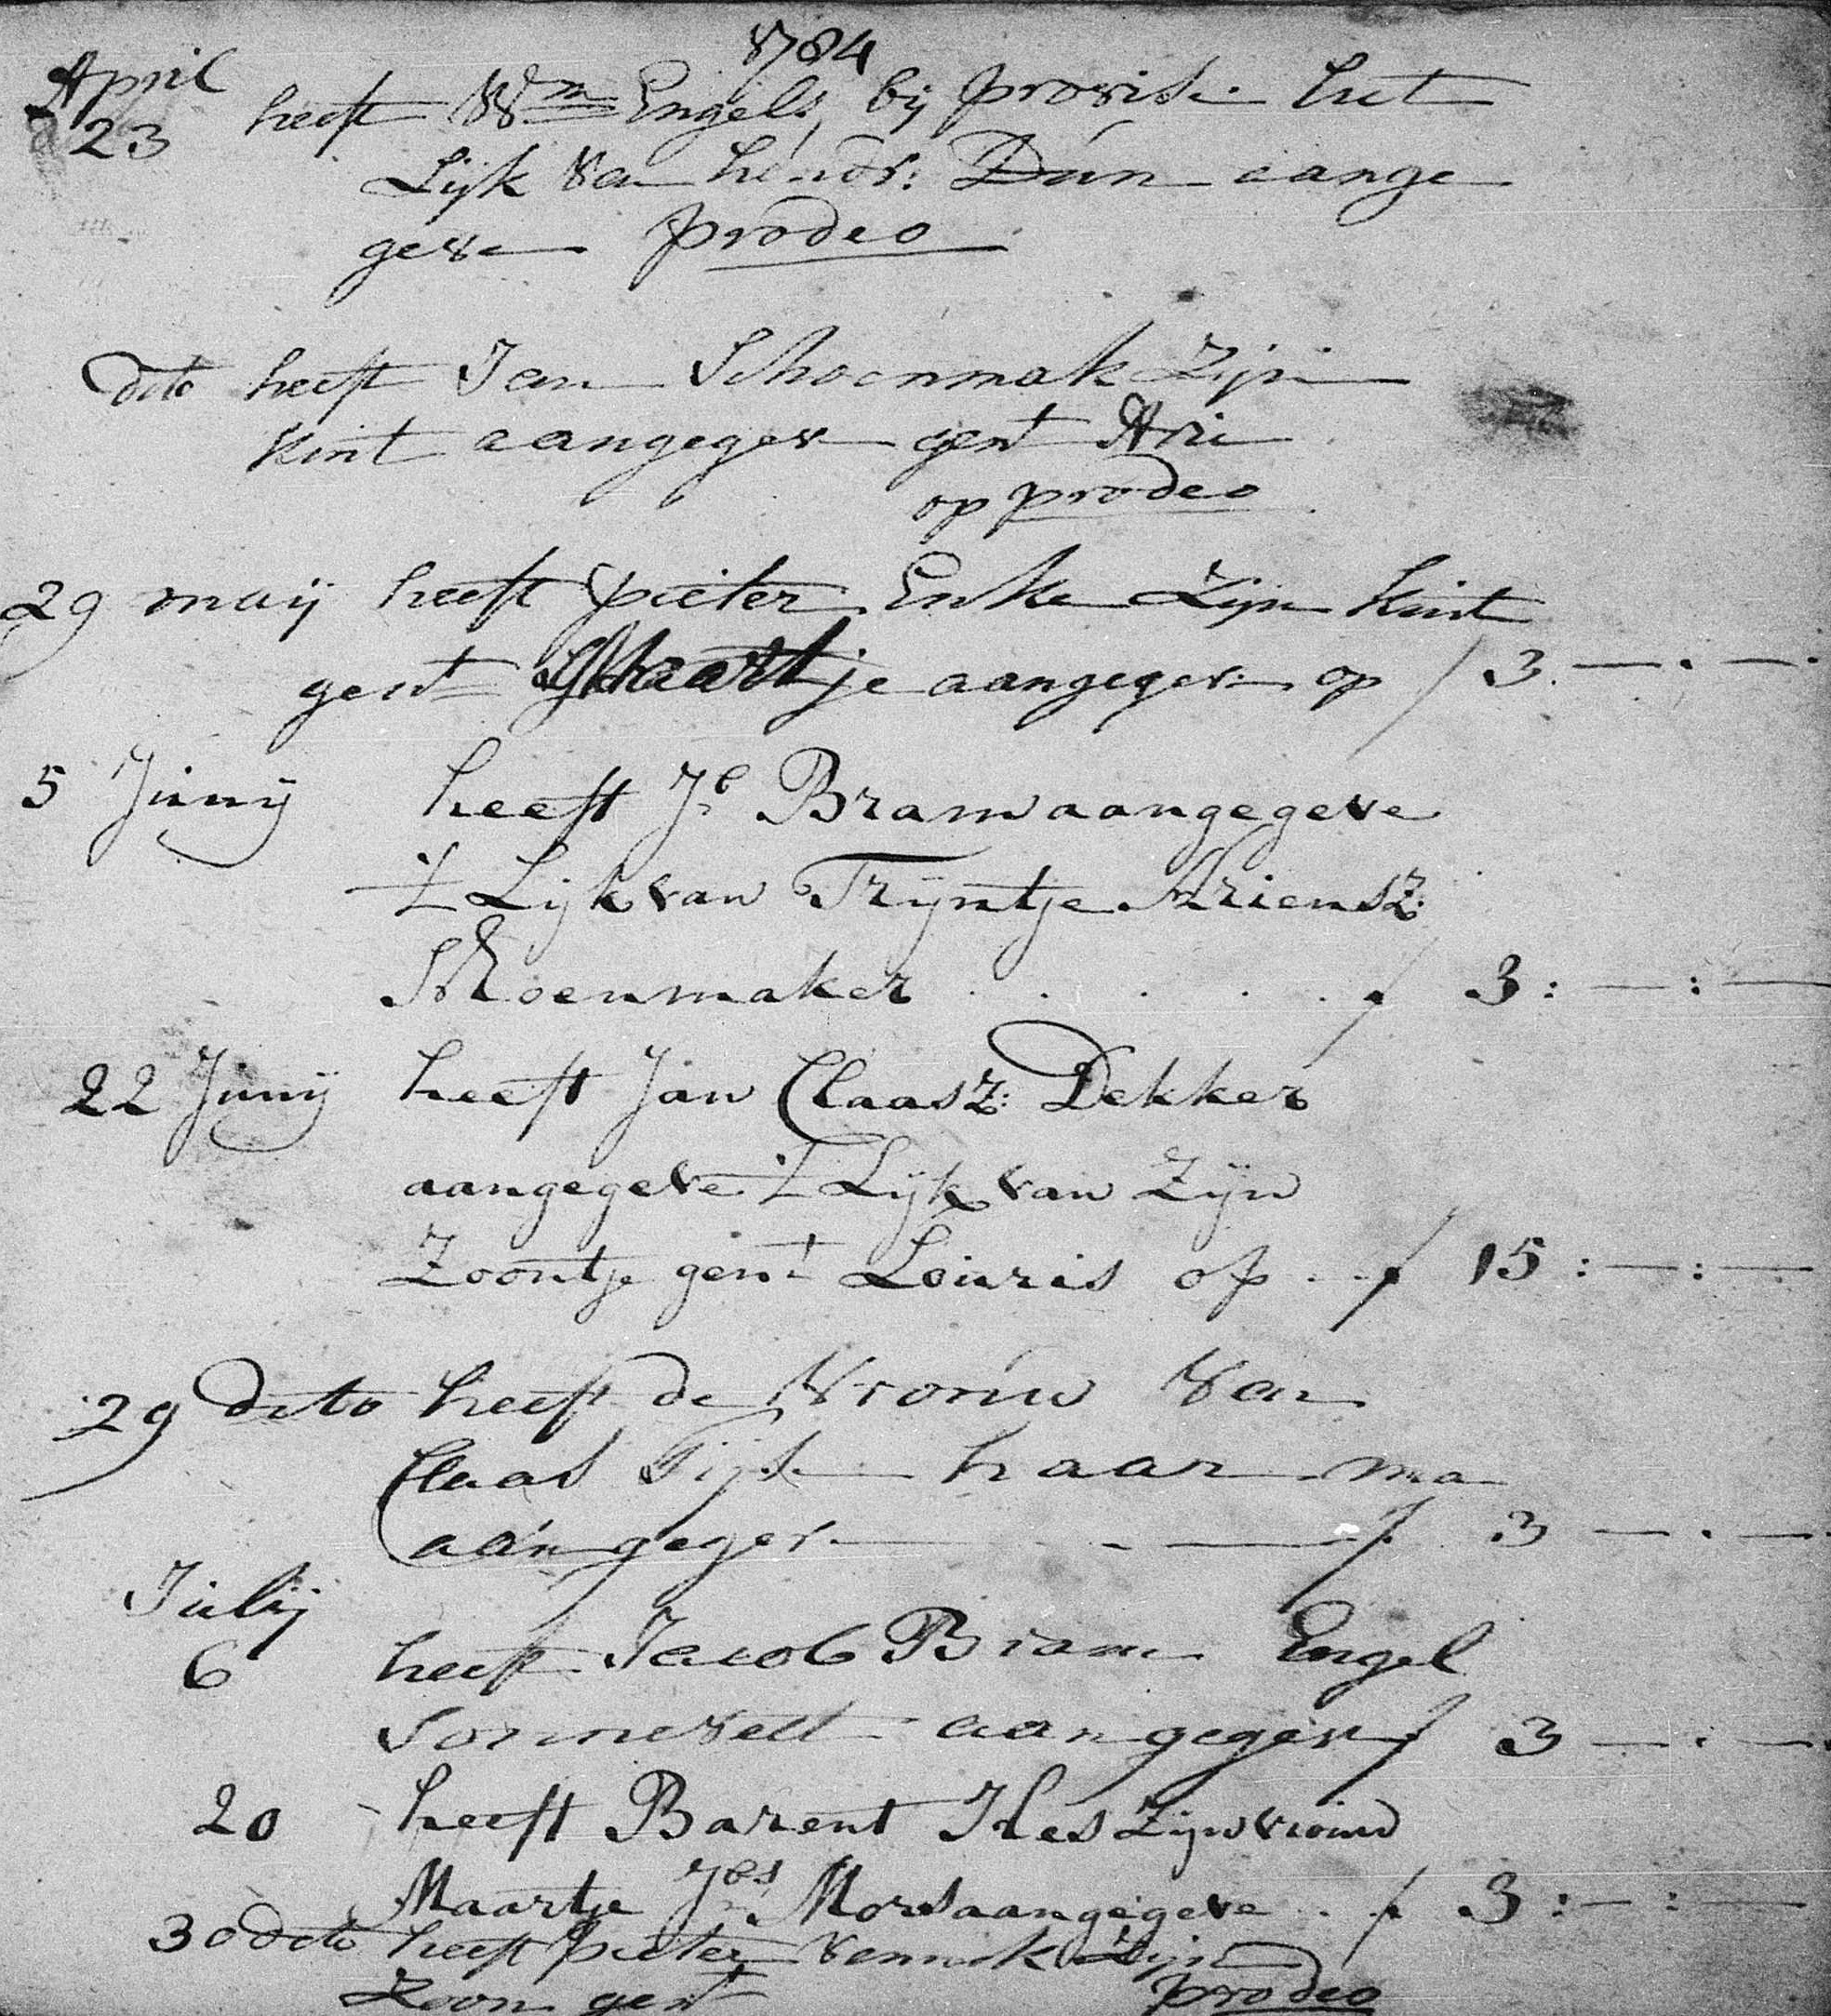 1784
April
23 heeft Wm Engels, bij provisie het
Lijk van hendr: Dún aange
geve prodeo
dito heeft Jan Schoenmak Zijn
kint aangegev gent Arie
op prodeo
29 maij heeft pieter Enke Zijn kint
gent Maartje aangegeve op f 3 — . — .
5 Junij heeft Jb Bram aangegeve
't Lijk van Trijntje Ariensz:
Schoenmaker . . . . . f 3 : — : —
22 Junij heeft Jan Claasz: Dekker
aangegeve 't Lijk van Zijn
Zoontje gent Louris op . . f 15 : — : —
29 dito heeft de Vrouw Van
Claas Tijse haar ma
aangegeve — f 3 — . —
Julij
6 heeft Jacob Bram Engel
Sonnevelt aangegev f 3 — . — .
20 heeft Barent Kes Zijn vrouw
Maartje Jbs Mors aangegeve . . f 3 : — : —
30 dito heeft pieter Vennik Zijn
Zoon gent prodeo